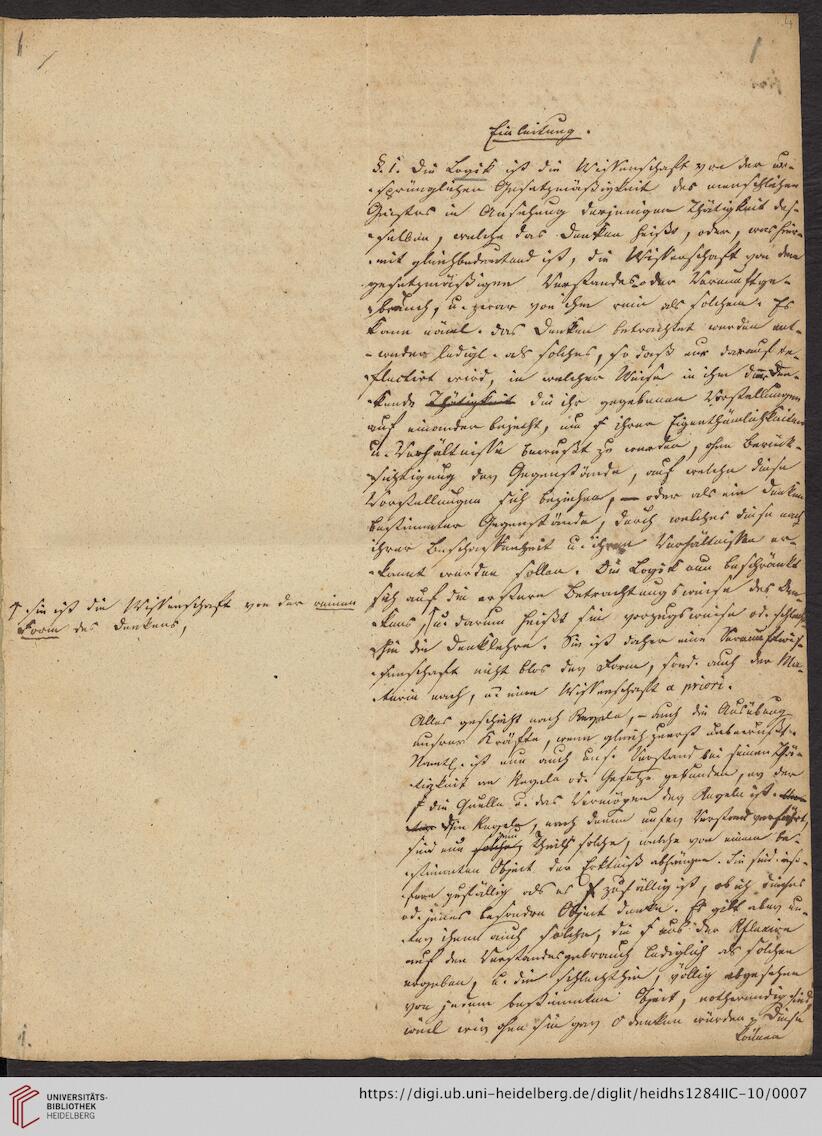 4
1
Einleitung.
§. 1. Die Logik ist die Wissenschaft von der ur-
sprünglichen Gesetzmäßigkeit des menschlichen
Geistes in Ansehung derjenigen Thätigkeit des-
selben, welche das Denken heißt, oder, was hier-
mit gleichbedeutend ist, die Wissenschaft von dem
gesetzmäßigen Verstandes- oder Vernunftge-
brauch, u. zwar von ihm rein als solchem. Es
kann näml. das Denken betrachtet werden ent-
weder ledigl. als solches, so daß nur darauf re-
flectirt wird, in welcher Weise in ihm die den-
kende Thätigkeit die ihr gegebenen Vorstellungen
auf einander bezieht, um sich ihrer Eigenthümlichkeiten
u. Verhältnisse bewußt zu werden, ohne Berück-
sichtigung der Gegenstände, auf welche diese
Vorstellungen sich beziehen, — oder als ein Denken
bestimmter Gegenstände, durch welches diese nach
ihrer Beschaffenheit u. ihren Verhältnissen er-
kannt werden sollen. Die Logik nun beschränkt
sich auf die erstere Betrachtungsweise des Den-
kens, u. darum heißt sie vorzugsweise od. schlecht-
hin die Denklehre. Sie ist daher eine Vernunftwis-
senschaft nicht blos der Form, sond. auch der Ma-
terie nach, u. eine Wissenschaft a priori.
Alles geschieht nach Regeln, – auch die Ausübung
unsrer Kräfte, wenn gleich zuerst unbewußt.
Namtl. ist nun auch uns. Verstand bei seinen Thä-
tigkeit an Regeln od. Gesetze gebunden, er der
die Quelle u. das Vermögen der Regeln ist.
Die Regeln, nach denen unser Verstand verfährt,
sind nun theils solche, welche von einem be-
stimmten Object der Erktniß abhängen. Sie sind inso-
fern zufällig als es zufällig ist, ob ich dieses
od. jenes besondre Object denke. Es gibt aber un-
ter ihnen auch solche, die sich aus der Reflexion
auf den Verstandesgebrauch lediglich als solchen
ergeben, u. die schlechthin, völlig abgesehen
von jedem bestimmten Object, nothwendig sind,
weil wir ohne sie gar nicht denken würden. Diese
können
sie ist die Wissenschaft von der reinen
Form des Denkens,
1.
UNIVERSITÄTS-
BIBLIOTHEK
HEIDELBERG
https://digi.ub.uni-heidelberg.de/diglit/heidhs1284IIC-10/0007